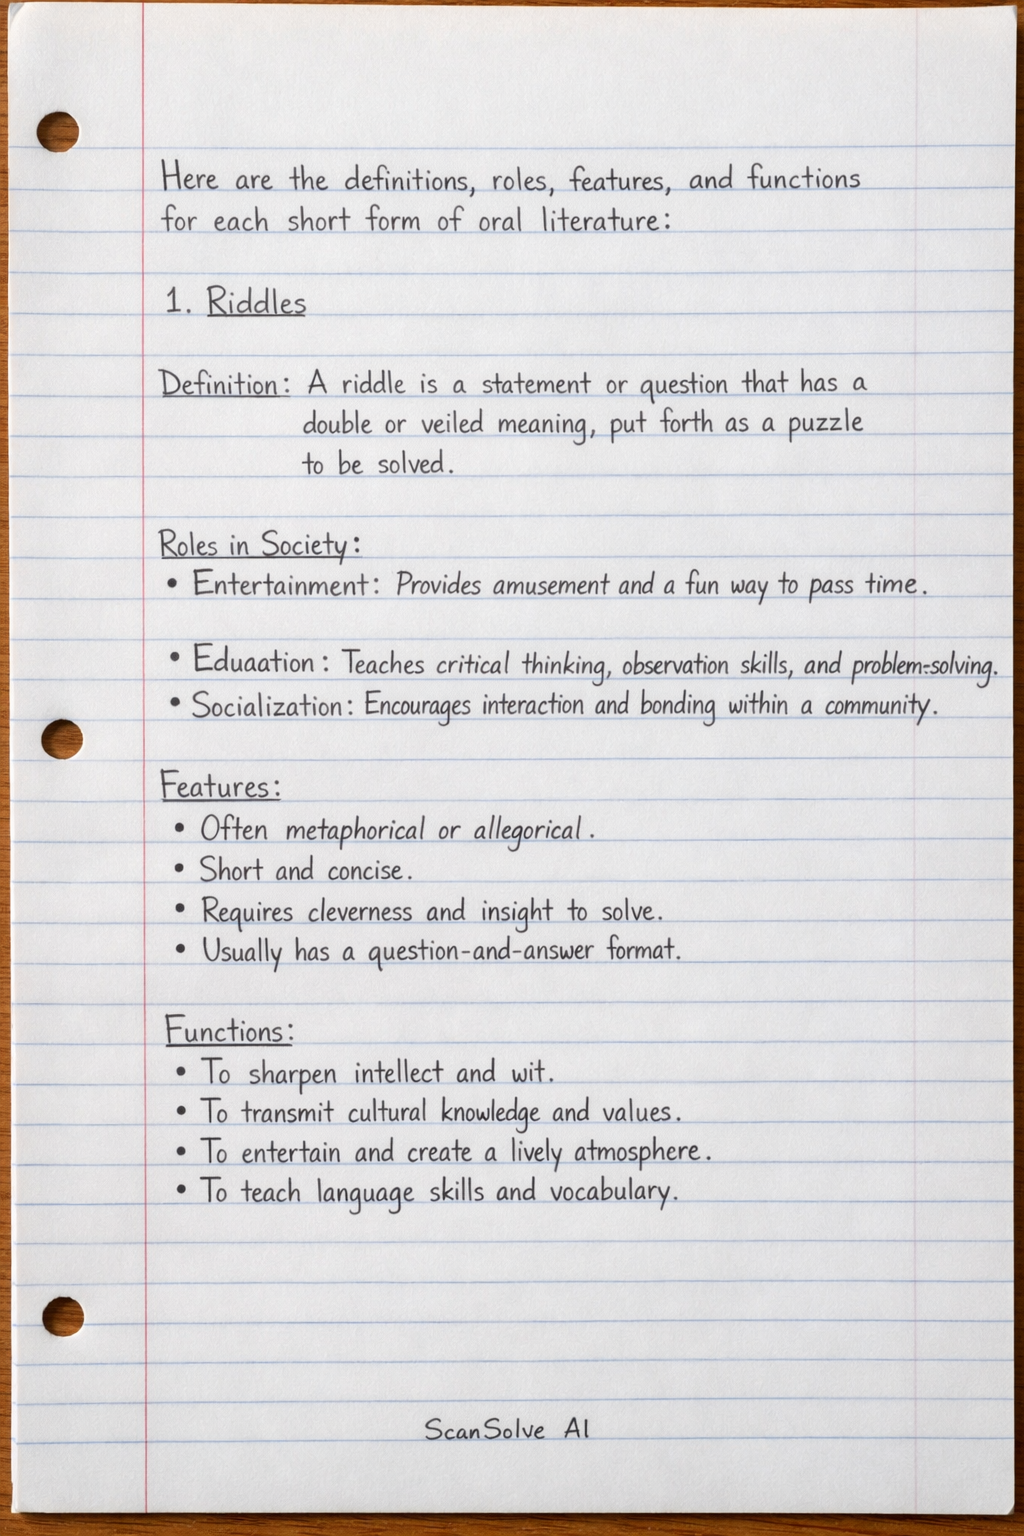 Here are the definitions, roles, features, and functions
for each short form of oral literature:
1. Riddles
Definition: A riddle is a statement or question that has a
double or veiled meaning, put forth as a puzzle
to be solved.
Roles in Society:
• Entertainment: Provides amusement and a fun way to pass time.
• Eduaation: Teaches critical thinking, observation skills, and problem-solving.
• Socialization: Encourages interaction and bonding within a community.
Features:
• Often metaphorical or allegorical.
• Short and concise.
• Requires cleverness and insight to solve.
• Usually has a question-and-answer format.
Functions:
• To sharpen intellect and wit.
• To transmit cultural knowledge and values.
• To entertain and create a lively atmosphere.
• To teach language skills and vocabulary.
ScanSolve AI